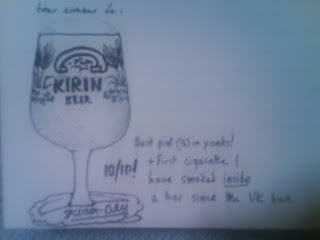 beer number
KIRIN
BEER
Best pint (½) in yonks!
10/10!
+ First cigarette I
have smoked inside
a bar since the UK ban.
Kirin-